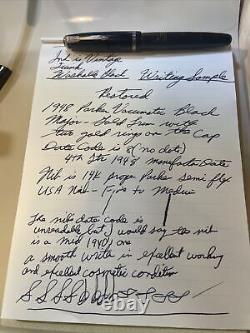 Ink is Vintage
Frank
Washable Black Writing Sample
Restored
1948 Parker Vacumatic Black
Major - Gold Trim with
two gold rings on the Cap
Date Code is 8 (no dots)
4th Qtr 1948 manufactor Date
Nib is 14K proper Parker semi flex
USA Nib - Fine to Medium
The nibs date code is
unreadable but I would say the nib
is a mid 1940s one
a smooth writer in excellent working
and excellent cosmetic condition
S S S S